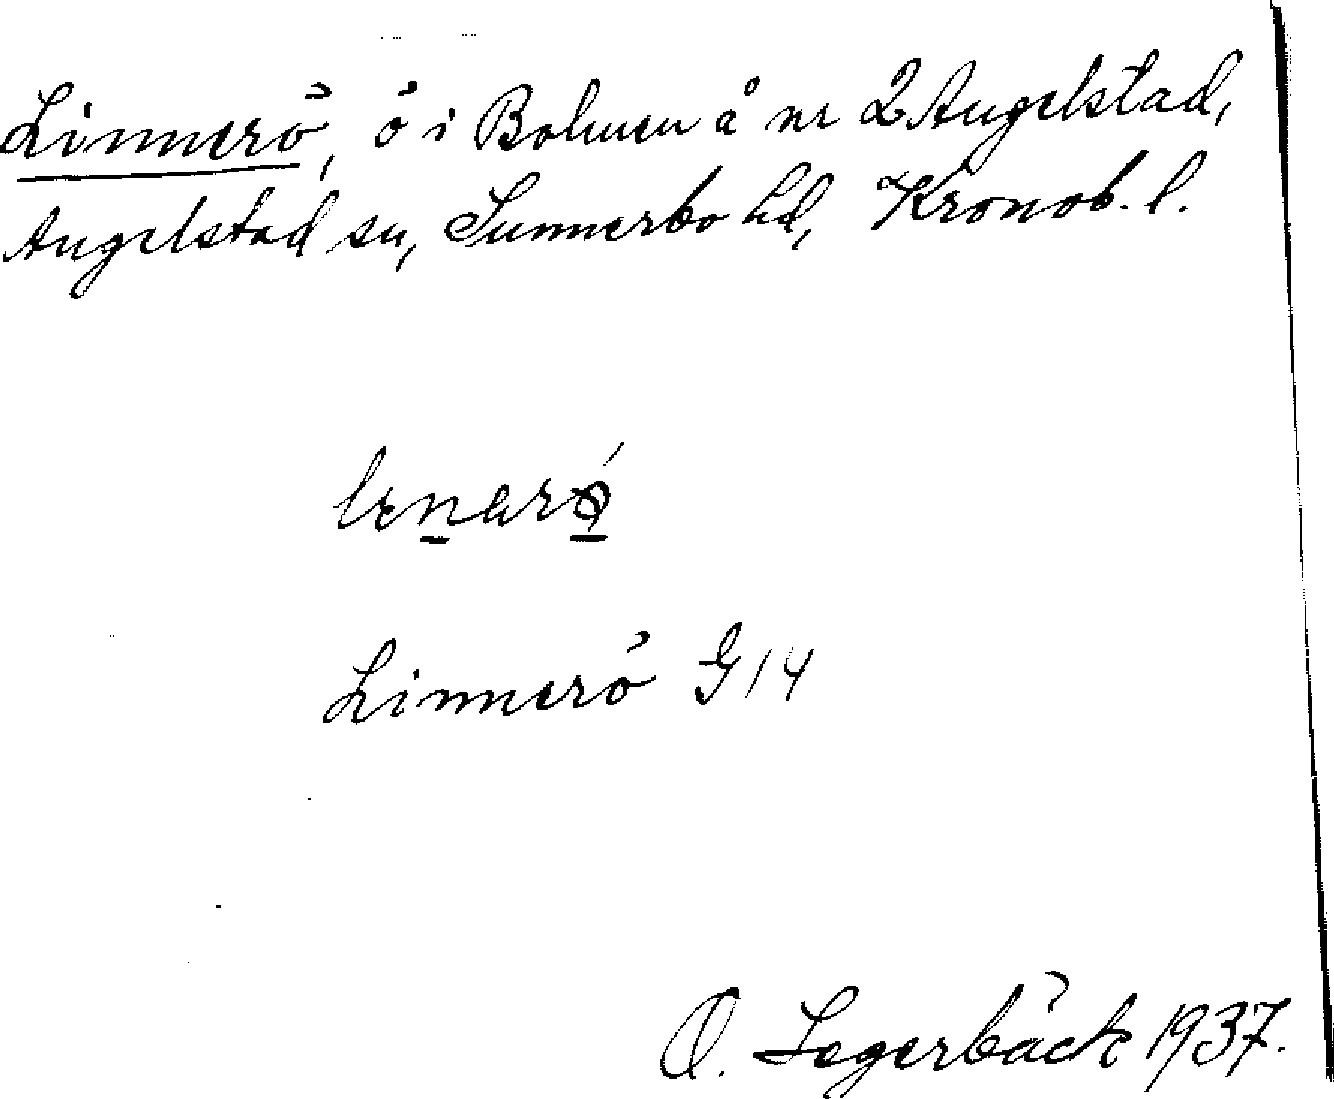 Linnerö, ö i Bolmen å nr 2 Angelstad,
Angelstad sn, Sunnerbo hd, Kronob. l.
Linnerö G 14
O. Segerbäck 1937.